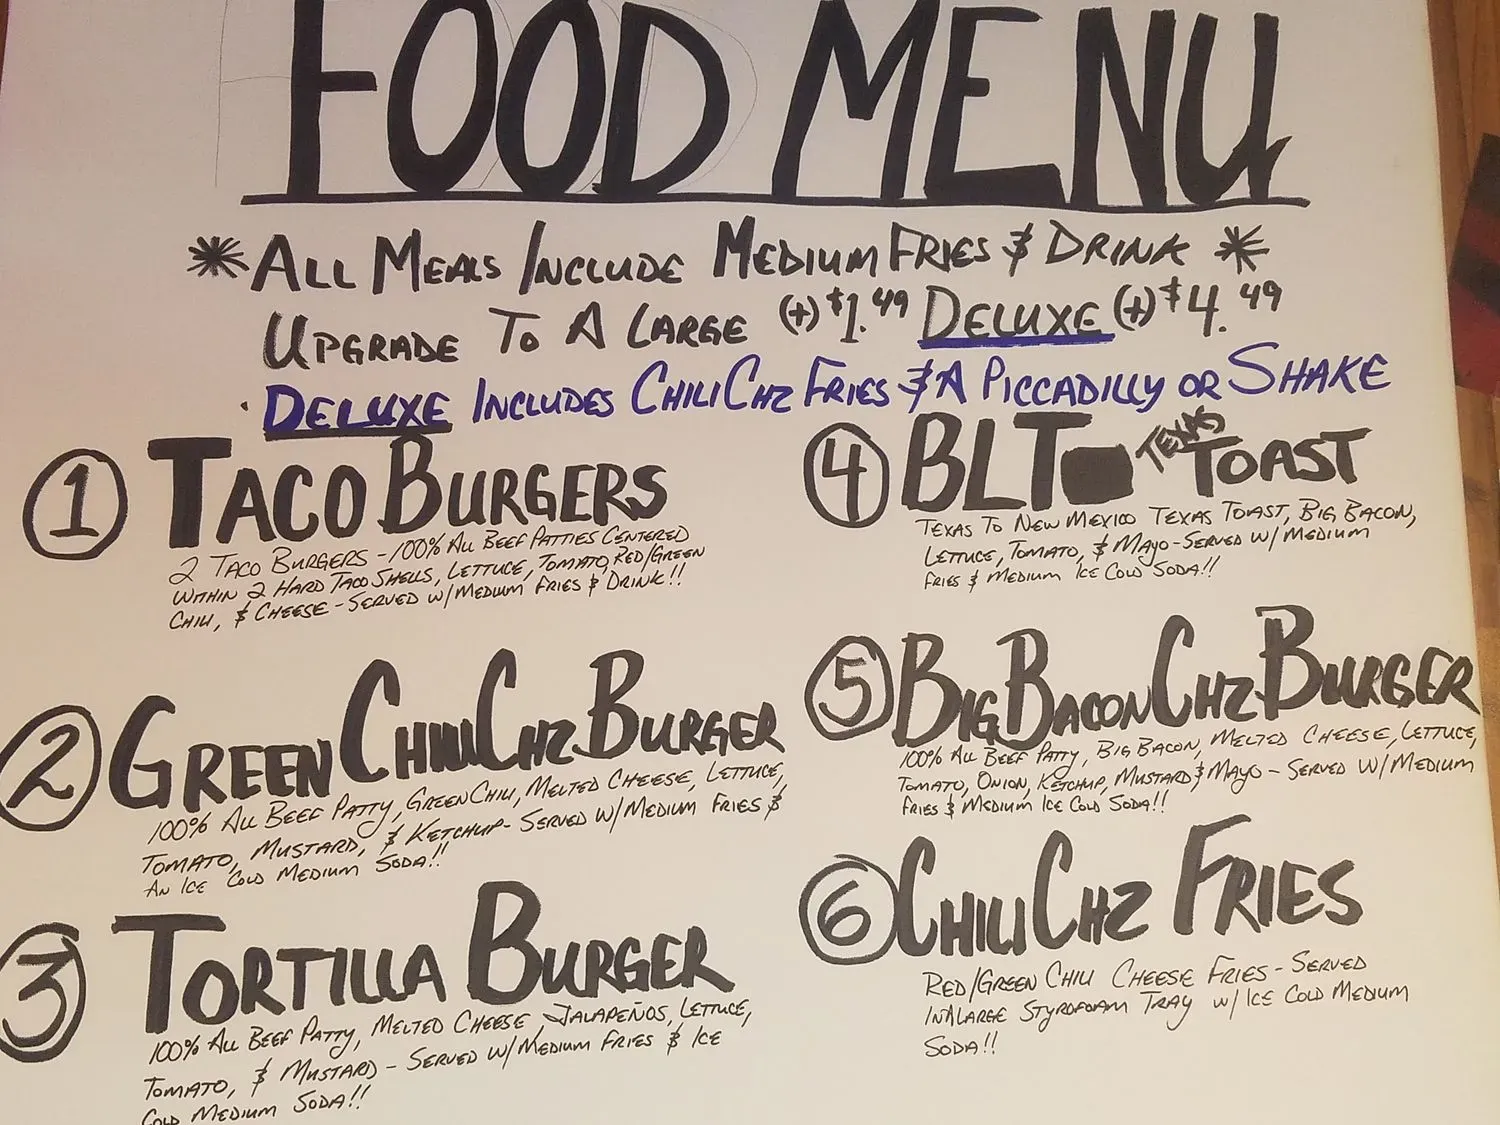 FOOD MENU
*ALL MEALS INCLUDE MEDIUM FRIES & DRINK *
UPGRADE TO A LARGE (+) $1.49 DELUXE (+) $4.49
· DELUXE INCLUDES CHILI CHZ FRIES & A PICCADILLY OR SHAKE
1 TACO BURGERS
2 TACO BURGERS - 100% ALL BEEF PATTIES CENTERED
WITHIN 2 HARD TACO SHELLS, LETTUCE, TOMATO, RED/GREEN
CHILI, & CHEESE - SERVED W/MEDIUM FRIES & DRINK!!
2 GREEN CHILI CHZ BURGER
100% ALL BEEF PATTY, GREEN CHILI, MELTED CHEESE, LETTUCE,
TOMATO, MUSTARD, & KETCHUP - SERVED W/MEDIUM FRIES &
AN ICE COLD MEDIUM SODA!!
3 TORTILLA BURGER
100% ALL BEEF PATTY, MELTED CHEESE, JALAPEÑOS, LETTUCE,
TOMATO, & MUSTARD - SERVED W/MEDIUM FRIES & ICE
COLD MEDIUM SODA!!
4 BLT TEXAS TOAST
TEXAS TO NEW MEXICO TEXAS TOAST, BIG BACON,
LETTUCE, TOMATO, & MAYO - SERVED W/ MEDIUM
FRIES & MEDIUM ICE COLD SODA!!
5 BIG BACON CHZ BURGER
100% ALL BEEF PATTY, BIG BACON, MELTED CHEESE, LETTUCE,
TOMATO, ONION, KETCHUP, MUSTARD & MAYO - SERVED W/MEDIUM
FRIES & MEDIUM ICE COLD SODA!!
6 CHILI CHZ FRIES
RED/GREEN CHILI CHEESE FRIES - SERVED
IN A LARGE STYROFOAM TRAY W/ ICE COLD MEDIUM
SODA!!